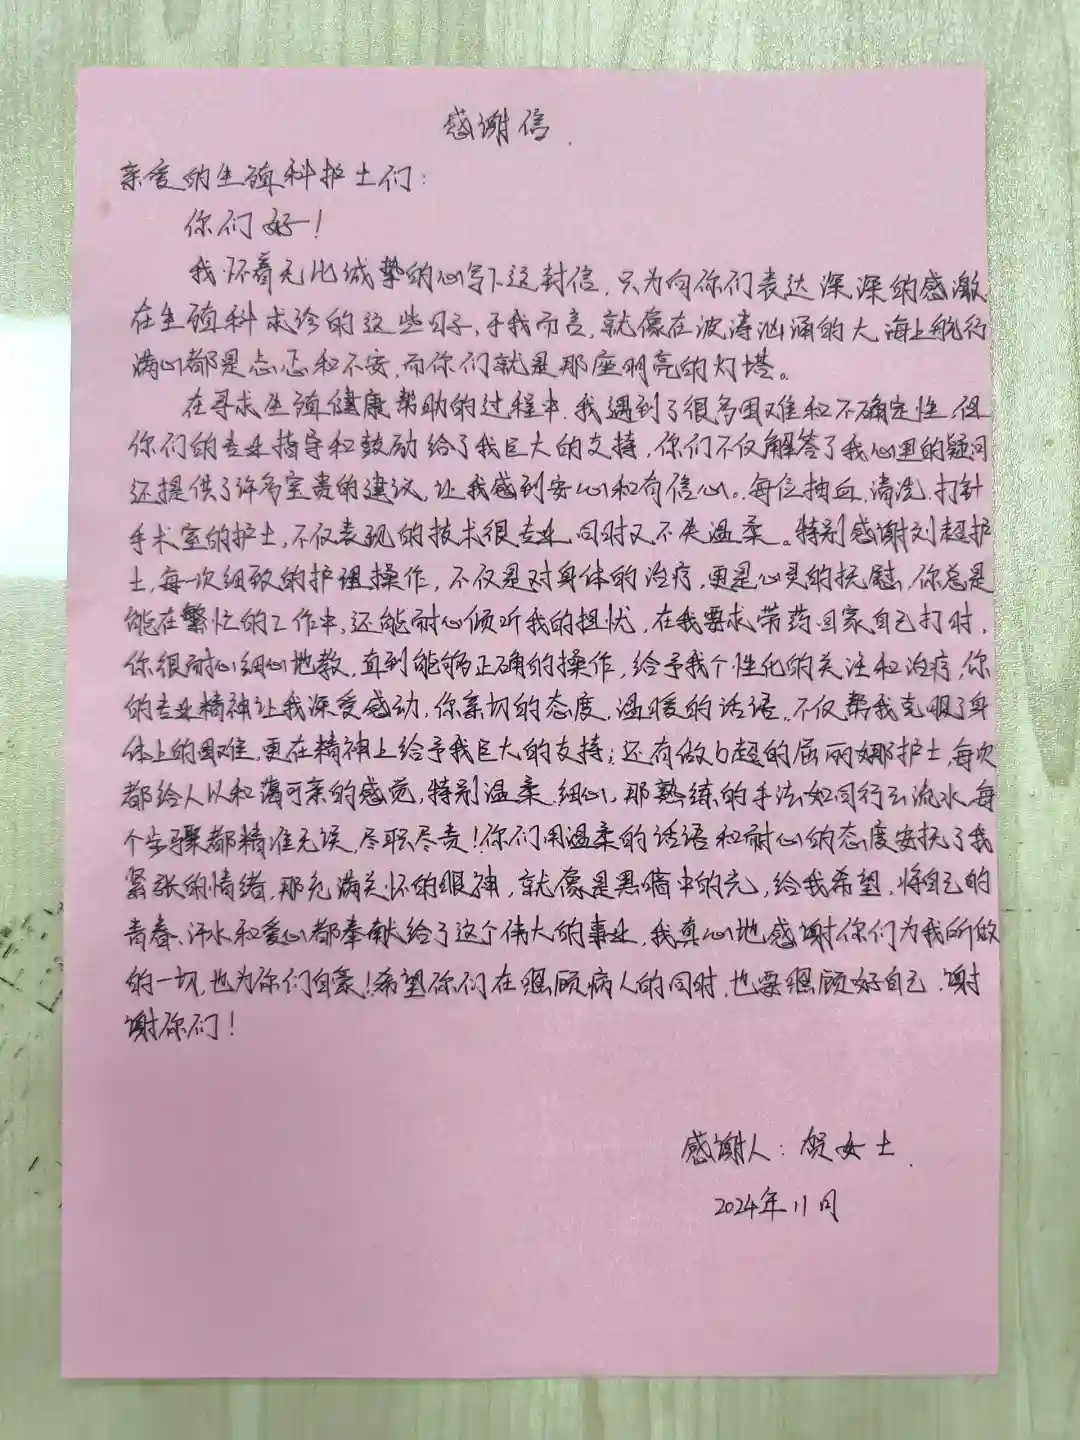 感谢信.
亲爱的生殖科护士们：
你们好！
我怀着无比诚挚的心写下这封信，只为向你们表达深深的感激
在生殖科求诊的这些日子，于我而言，就像在波涛汹涌的大海上航行
满心都是忐忑和不安，而你们就是那座明亮的灯塔。
在寻求生殖健康帮助的过程中，我遇到了很多困难和不确定性，但
你们的专业指导和鼓励给了我巨大的支持，你们不仅解答了我心里的疑问
还提供了许多宝贵的建议，让我感到安心和有信心。每位抽血、清洗、打针
手术室的护士，不仅表现的技术很专业，同时又不失温柔。特别感谢刘超护
士，每一次细致的护理操作，不仅是对身体的治疗，更是心灵的抚慰，你总是
能在繁忙的工作中，还能耐心倾听我的担忧，在我要求带药回家自己打时，
你很耐心细心地教，直到能够正确的操作，给予我个性化的关注和治疗，你
的专业精神让我深受感动，你亲切的态度，温暖的话语，不仅帮我克服了身
体上的困难，更在精神上给予我巨大的支持；还有做b超的屈丽娜护士，每次
都给人以和蔼可亲的感觉，特别温柔、细心，那熟练的手法如同行云流水，每
个步骤都精准无误，尽职尽责！你们用温柔的话语和耐心的态度安抚了我
紧张的情绪，那充满关怀的眼神，就像是黑暗中的光，给我希望，将自己的
青春、汗水和爱心都奉献给了这个伟大的事业，我真心地感谢你们为我所做
的一切，也为你们自豪！希望你们在照顾病人的同时，也要照顾好自己，谢
谢你们！
感谢人：贺女士.
2024年11月